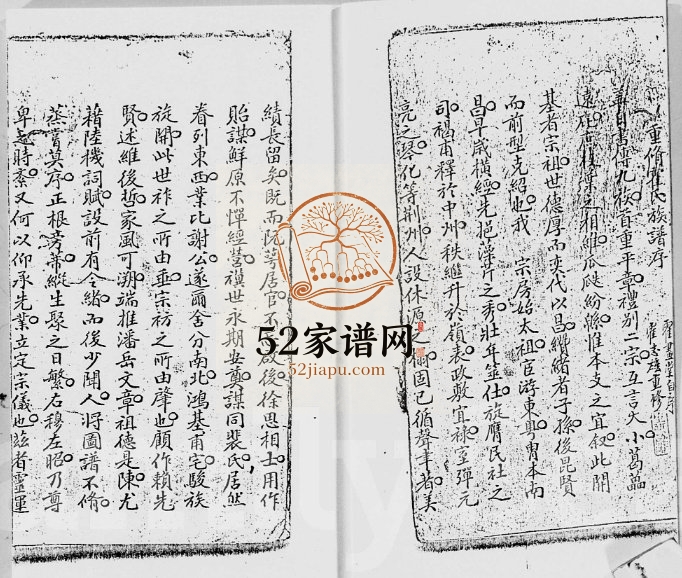 重脩霍氏族譜序
書傳九族首重平章禮別二宗互言大小葛藟
相維瓜瓞紛緜惟本支之宜叙此開
基者宗祖世德厚而奕代以昌纘緒者子孫後昆賢
而前型克紹也我 宗房始太祖臣游東粤胄本南
昌早歲橫經先挹藻芹之秀壯年筮仕旋膺民社之
司褐甫釋於中州秩繼升於嶺表政敷宜祿室彈元
亮之琴化等荆州人設休源之榻固已循聲聿著美
績長留矣既而阮萼居官不啟後徐思相士用作
貽謀鮮原不憚經營禩世永期安奠謀同裴氏居然
眷列東西業比謝公遂爾舍分南北鴻基甫宅駿族
旋開此世祚之所由垂宗祊之所由肇也顧作賴先
賢述維後哲家風可溯端推潘岳文章祖德是陳尤
藉陸機詞賦設前有令緒而後少聞人將圖譜不脩
蒸嘗莫序正根旁蒂縱生聚之日繁右穆左昭乃尊
卑之時紊又何以仰承先業立定宗儀也兹者靈運
52家谱网
52jiapu.com